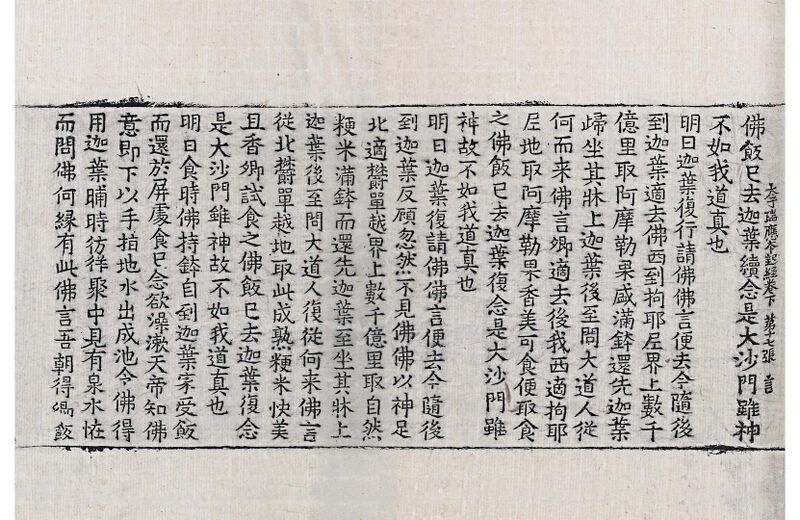 太子瑞應本起經卷下 第七張 言
佛飯已去迦葉續念是大沙門雖神
不如我道真也
明日迦葉復行請佛佛言便去今隨後
到迦葉適去佛西到拘耶尼界上數千
億里取阿摩勒果盛滿鉢還先迦葉
歸坐其牀上迦葉後至問大道人從
何而來佛言卿適去後我西適拘耶
尼地取阿摩勒果香美可食便取食
之佛飯已去迦葉復念是大沙門雖
神故不如我道真也
明日迦葉復請佛佛言便去今隨後
到迦葉反顧忽然不見佛佛以神足
北適欝單越界上數千億里取自然
粳米滿鉢而還先迦葉至坐其牀上
迦葉後至問大道人復從何來佛言
從北欝單越地取此成熟粳米快美
且香卿試食之佛飯已去迦葉復念
是大沙門雖神故不如我道真也
明日食時佛持鉢自到迦葉家受飯
而還於屏處食已念欲澡漱天帝知佛
意即下以手指地水出成池令佛得
用迦葉晡時彷徉聚中見有泉水恠
而問佛何緣有此佛言吾朝得卿飯